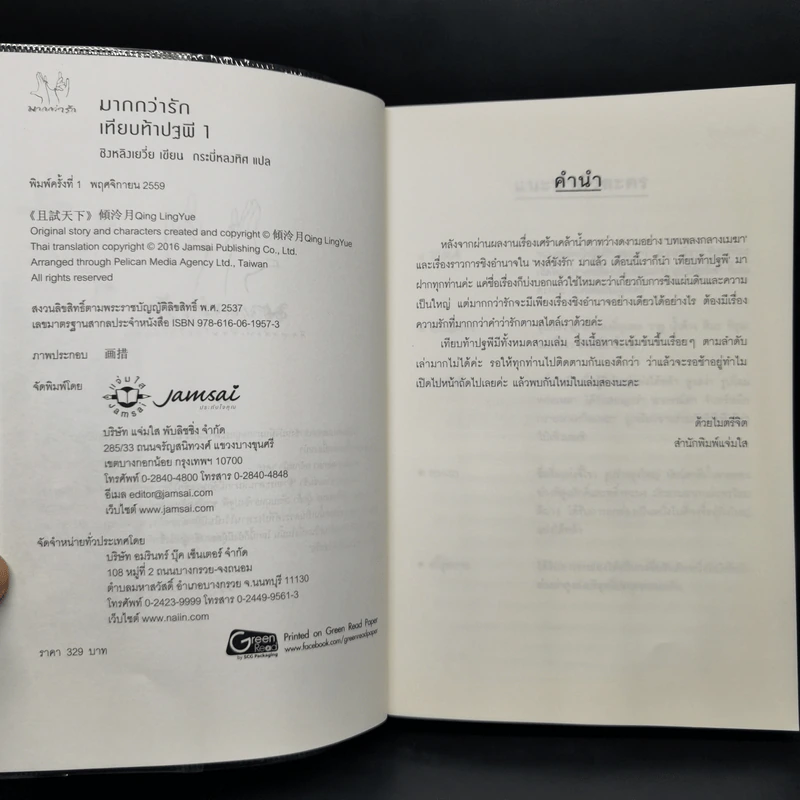 มากกว่ารัก
มากกว่ารัก
เทียบท้าปฐพี 1
ชิงหลิงเยวี่ย เขียน กระบี่หลงทิศ แปล
พิมพ์ครั้งที่ 1 พฤศจิกายน 2559
《且試天下》傾泠月Qing LingYue
Original story and characters created and copyright © 傾泠月Qing LingYue
Thai translation copyright © 2016 Jamsai Publishing Co., Ltd.
Arranged through Pelican Media Agency Ltd., Taiwan
All rights reserved
สงวนลิขสิทธิ์ตามพระราชบัญญัติลิขสิทธิ์ พ.ศ. 2537
เลขมาตรฐานสากลประจำหนังสือ ISBN 978-616-06-1957-3
ภาพประกอบ 画措
จัดพิมพ์โดย
แจ่มใส
Jamsai
Jamsai
ประทับใจคุณ
บริษัท แจ่มใส พับลิชชิ่ง จำกัด
285/33 ถนนจรัญสนิทวงศ์ แขวงบางขุนศรี
เขตบางกอกน้อย กรุงเทพฯ 10700
โทรศัพท์ 0-2840-4800 โทรสาร 0-2840-4848
อีเมล editor@jamsai.com
เว็บไซต์ www.jamsai.com
จัดจำหน่ายทั่วประเทศโดย
บริษัท อมรินทร์ บุ๊ค เซ็นเตอร์ จำกัด
108 หมู่ที่ 2 ถนนบางกรวย-จงถนอม
ตำบลมหาสวัสดิ์ อำเภอบางกรวย จ.นนทบุรี 11130
โทรศัพท์ 0-2423-9999 โทรสาร 0-2449-9561-3
เว็บไซต์ www.naiin.com
ราคา 329 บาท
Green Read
by SCG Packaging
Printed on Green Read Paper
www.facebook.com/greenreadpaper
คำนำ
หลังจากผ่านผลงานเรื่องเศร้าเคล้าน้ำตาทว่างดงามอย่าง 'บทเพลงกลางเมฆา'
และเรื่องราวการชิงอำนาจใน 'หงส์ขังรัก' มาแล้ว เดือนนี้เราก็นำ 'เทียบท้าปฐพี' มา
ฝากทุกท่านค่ะ แค่ชื่อเรื่องก็บ่งบอกแล้วใช่ไหมคะว่าเกี่ยวกับการชิงแผ่นดินและความ
เป็นใหญ่ แต่มากกว่ารักจะมีเพียงเรื่องชิงอำนาจอย่างเดียวได้อย่างไร ต้องมีเรื่อง
ความรักที่มากกว่าคำว่ารักตามสไตล์เราด้วยค่ะ
เทียบท้าปฐพีมีทั้งหมดสามเล่ม ซึ่งเนื้อหาจะเข้มข้นขึ้นเรื่อยๆ ตามลำดับ
เล่ามากไม่ได้ค่ะ รอให้ทุกท่านไปติดตามกันเองดีกว่า ว่าแล้วจะรอช้าอยู่ทำไม
เปิดไปหน้าถัดไปเลยค่ะ แล้วพบกันใหม่ในเล่มสองนะคะ
ด้วยไมตรีจิต
สำนักพิมพ์แจ่มใส